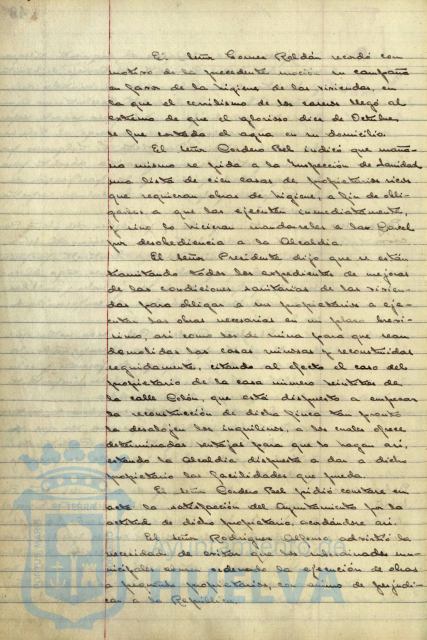 El Señor Gomez Roldán recordó con
motivo de la precedente moción su campaña
en favor de la higiene de las viviendas, en
la que el cerrilismo de los caseros llegó al
extremo de que el glorioso diez de Octubre
le fue cortada el agua en su domicilio.
El Señor Cordero Bel indicó que maña-
na mismo se pida a la Inspección de Sanidad
una lista de cien casas de propietarios ricos
que requieran obras de higiene, a fin de obli-
garlos a que las ejecuten inmediatamente,
y si no lo hicieran mandarles a la Carcel
por desobediencia a la Alcaldia.
El Señor Presidente dijo que se están
tramitando todos los expedientes de mejoras
de las condiciones sanitarias de las vivien-
das para obligar a sus propietarios a eje-
cutar las obras necesarias en un plazo breví-
simo, asi como los de ruina para que sean
demolidas las casas ruinosas y reconstruidas
seguidamente, citando al efecto el caso del
propietario de la casa número veintidos de
la calle Colón, que está dispuesto a empezar
la reconstrucción de dicha finca tan pronto
la desalojen los inquilinos, a los cuales ofrece
determinadas ventajas para que lo hagan asi,
estando la Alcaldia dispuesta a dar a dicho
propietario las facilidades que pueda.
El Señor Cordero Bel pidió constara en
acta la satisfacción del Ayuntamiento por la
actitud de dicho propietario, acordándose asi.
El Señor Rodriguez Alfonso advirtió la
necesidad de evitar que los subordinados mu-
nicipales ordenado la ejecución de obras
a pequeños propietarios, con animo de perjudi-
car a la República.
AYUNTAMIENTO
HUELVA